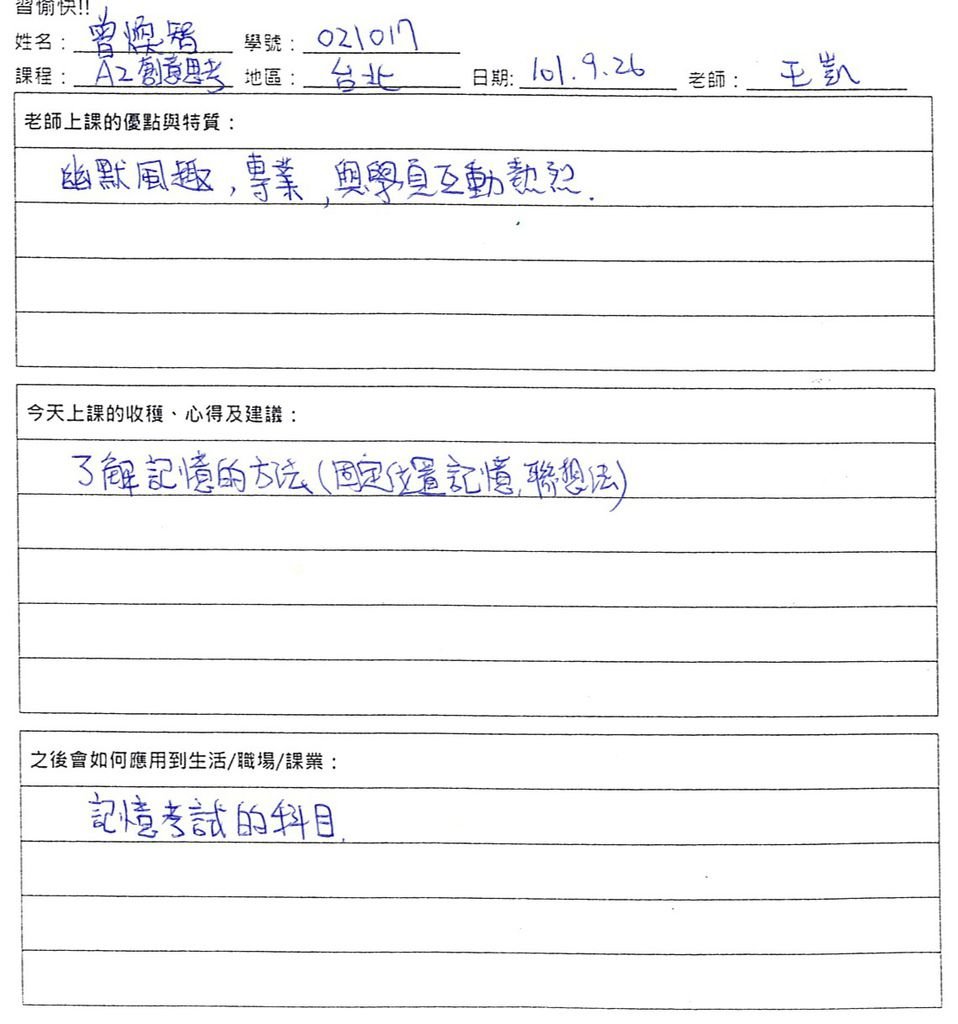 習愉快!!
姓名：曾煥智 學號：021017
課程：A2創意思考 地區：台北 日期:101.9.26 老師：王凱
老師上課的優點與特質：
幽默風趣,專業,與學員互動熱烈.
今天上課的收穫、心得及建議：
了解記憶的方法(固定位置記憶,聯想法)
之後會如何應用到生活/職場/課業：
記憶考試的科目.